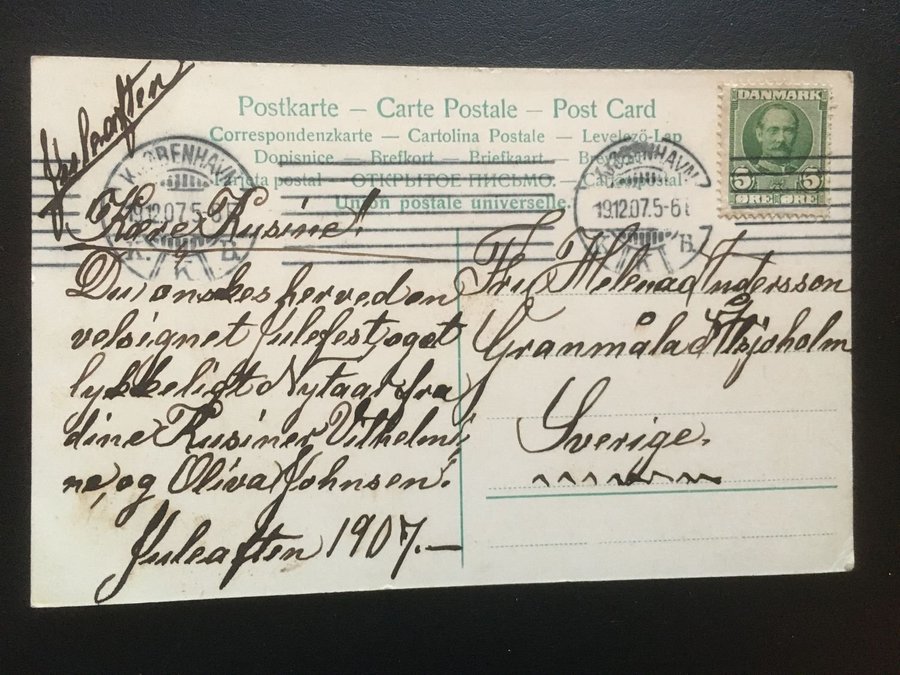 Juleaften
Postkarte – Carte Postale – Post Card
Correspondenzkarte – Cartolina Postale – Levelező-Lap
Dopisnice – Brefkort – Briefkaart –
Tarjeta postal – ОТКРЫТОЕ ПИСЬМО. –
Union postale universelle.
DANMARK
5 5
ØRE ØRE
KJØBENHAVN
19.12.07. 5-6
K. K B.
KJØBENHAVN
19.12.07. 5-6
K B.
Kære Kusine!
Du ønskes herved en
velsignet Julefest, og et
lykkeligt Nytaar fra
dine Kusiner Vilhelmi
ne, og Oliva Johnsen.
Juleaften 1907.—
Frk. Helena Andersson
Granmåla
Sverige.